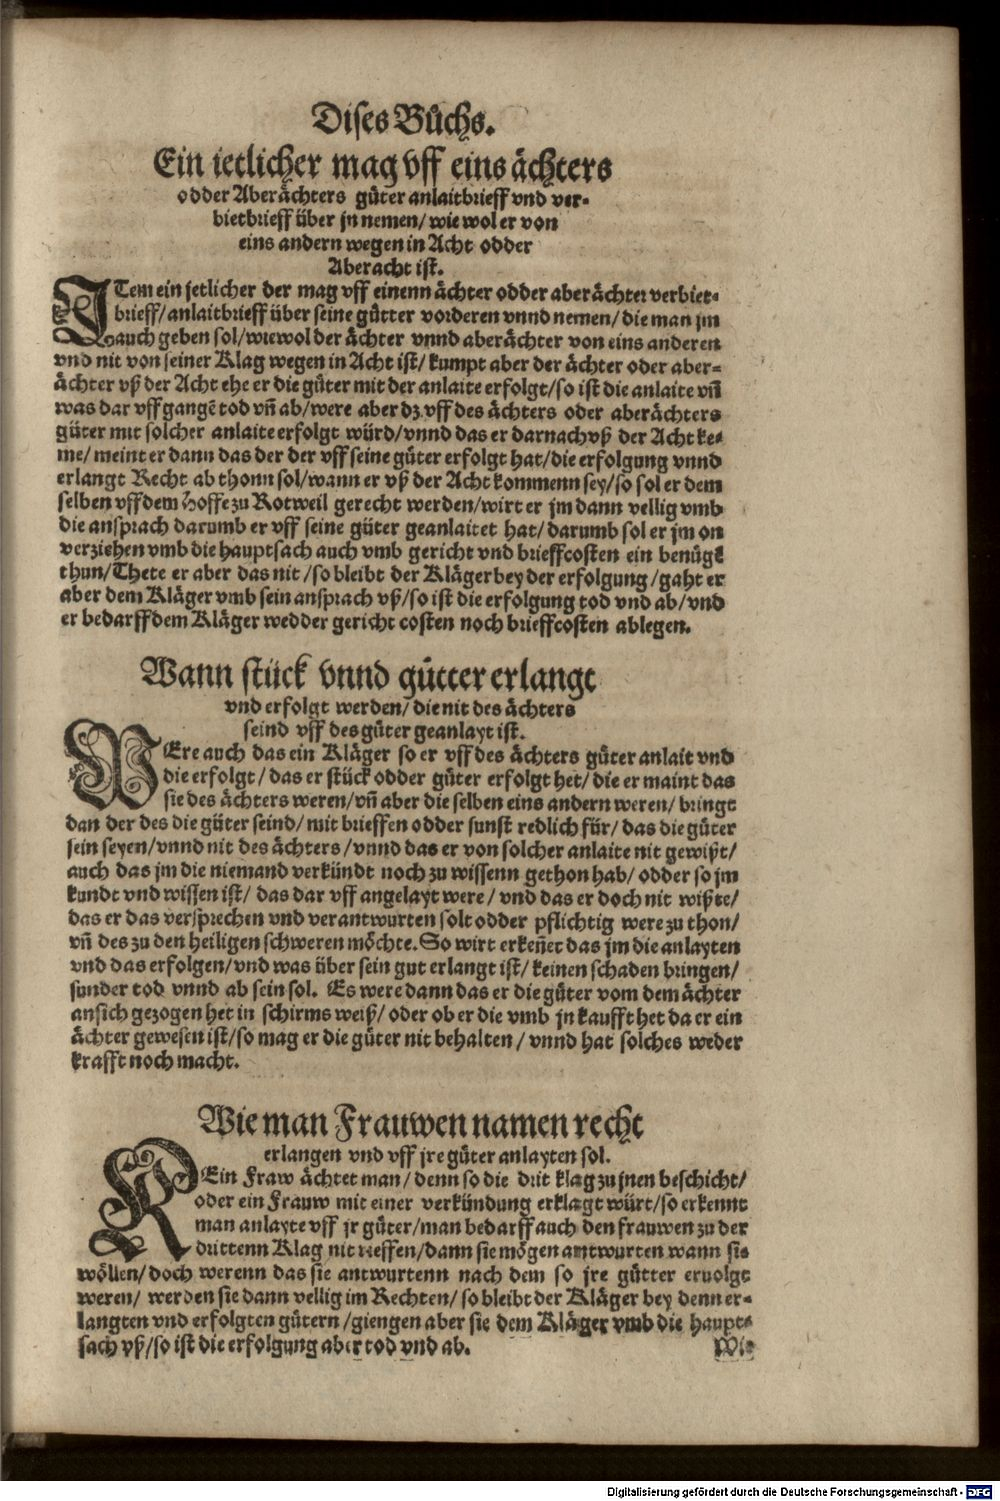 Dises Bůchs.
Ein ietlicher mag vff eins ächters
odder Aberächters gůter anlaitbrieff vnd ver-
bietbrieff über jn nemen/ wie wol er von
eins andern wegen in Acht odder
Aberacht ist.
ITem ein jetlicher der mag vff einenn ächter odder aberächter verbiet-
brieff/ anlaitbrieff über seine gůtter vorderen vnnd nemen/ die man jm
auch geben sol/ wiewol der ächter vnnd aberächter von eins anderen
vnd nit von seiner Klag wegen in Acht ist/ kumpt aber der ächter oder aber-
ächter vß der Acht ehe er die gůter mit der anlaite erfolgt/ so ist die anlaite vñ
was dar vff gangẽ tod vñ ab/ were aber dz vff des ächters oder aberächters
gůter mit solcher anlaite erfolgt würd/ vnnd das er darnach vß der Acht ke-
me/ meint er dann das der der vff seine gůter erfolgt hat/ die erfolgung vnnd
erlangt Recht ab thonn sol/ wann er vß der Acht kommenn sey/ so sol er dem
selben vff dem Hoffe zu Rotweil gerecht werden/ wirt er jm dann vellig vmb
die ansprach darumb er vff seine gůter geanlaitet hat/ darumb sol er jm on
verziehen vmb die hauptsach auch vmb gericht vnd brieffcosten ein benůgẽ
thun/ Thete er aber das nit/ so bleibt der Kläger bey der erfolgung/ gaht er
aber dem Kläger vmb sein ansprach vß/ so ist die erfolgung tod vnd ab/ vnd
er bedarff dem Kläger wedder gericht costen noch brieffcosten ablegen.
Wann stück vnnd gůtter erlangt
vnd erfolgt werden/ die nit des ächters
seind vff des gůter geanlayt ist.
WEre auch das ein Kläger so er vff des ächters gůter anlait vnd
die erfolgt/ das er stück odder gůter erfolgt het/ die er maint das
sie des ächters weren/ vñ aber die selben eins andern weren/ bringt
dan der des die gůter seind/ mit brieffen odder sunst redlich für/ das die gůter
sein seyen/ vnnd nit des ächters/ vnnd das er von solcher anlaite nit gewißt/
auch das jm die niemand verkündt noch zu wissenn gethon hab/ odder so jm
kundt vnd wissen ist/ das dar vff angelayt were/ vnd das er doch nit wißte/
das er das versprechen vnd verantwurten solt odder pflichtig were zu thon/
vñ des zu den heiligen schweren möchte. So wirt erkeñet das jm die anlayten
vnd das erfolgen/ vnd was über sein gut erlangt ist/ keinen schaden bringen/
sunder tod vnnd ab sein sol. Es were dann das er die gůter vom dem ächter
an sich gezogen het in schirms weiß/ oder ob er die vmb jn kaufft het da er ein
ächter gewesen ist/ so mag er die gůter nit behalten/ vnnd hat solches weder
krafft noch macht.
Wie man Frauwen namen recht
erlangen vnd vff jre gůter anlayten sol.
KEin Fraw ächtet man/ denn so die drit klag zu jnen beschicht/
oder ein Frauw mit einer verkündung erklagt würt/ so erkennt
man anlayte vff jr gůter/ man bedarff auch den frauwen zu der
drittenn Klag nit rieffen/ dann sie mögen antwurten wann sie
wöllen/ doch werenn das sie antwurtenn nach dem so jre gůtter eruolgt
weren/ werden sie dann vellig im Rechten/ so bleibt der Kläger bey denn er-
langten vnd erfolgten gůtern/ giengen aber sie dem Kläger vmb die haupt-
sach vß/ so ist die erfolgung aber tod vnd ab.
Wie
Digitalisierung gefördert durch die Deutsche Forschungsgemeinschaft - DFG